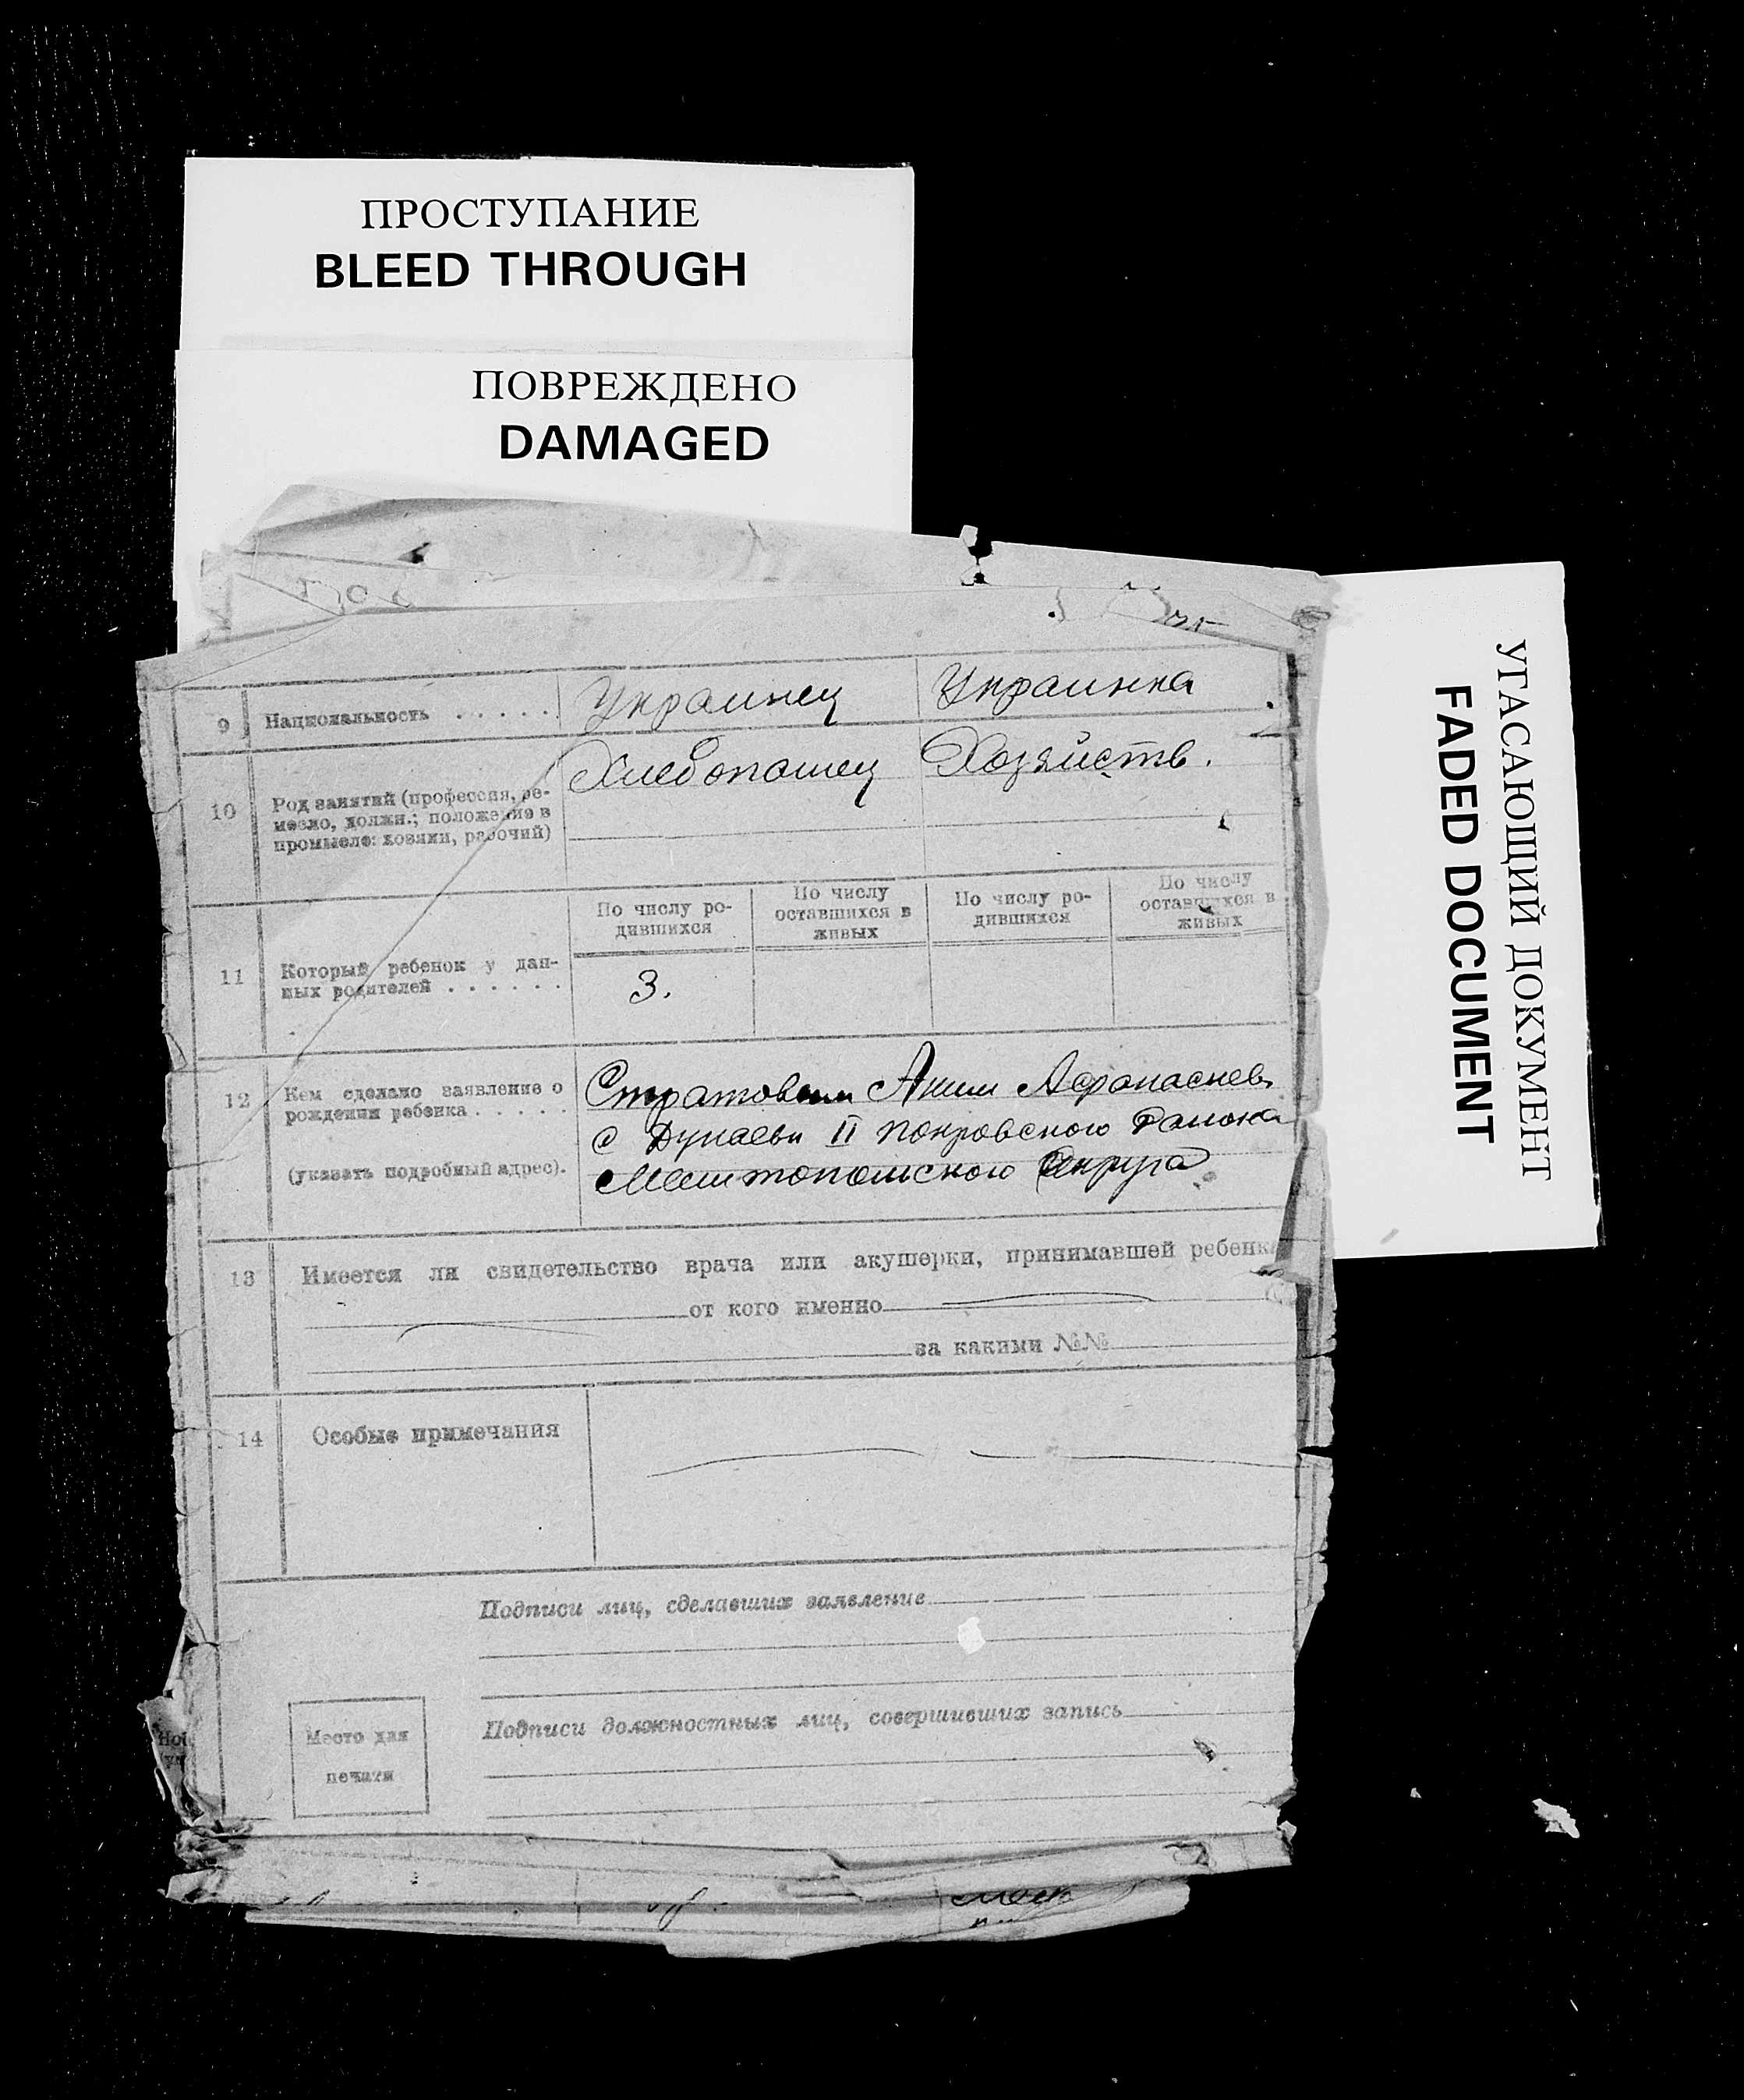 ПРОСТУПАНИЕ
BLEED THROUGH
ПОВРЕЖДЕНО
DAMAGED
УГАСАЮЩИЙ ДОКУМЕНТ
FADED DOCUMENT
9 Национальность . . . . . Украинец Украинка
10 Род занятий (профессия, ре-
месло, должн.; положение в
промысле: хозяин, рабочий)
Хлебопашец Хозяйств.
11 Который ребенок у дан-
ных родителей . . . . . .
По числу ро-
дившихся
По числу
оставшихся в
живых
По числу ро-
дившихся
По числу
оставшихся в
живых
3.
12 Кем сделано заявление о
рождении ребенка . . . . .
(указать подробный адрес).
Аким Афанасиев
с Дунаевки II Покровского Района
Округа
13 Имеется ли свидетельство врача или акушерки, принимавшей ребенка
от кого именно
за какими №№
14 Особые примечания
Подписи лиц, сделавших заявление
Подписи должностных лиц, совершивших запись
Место для
печати